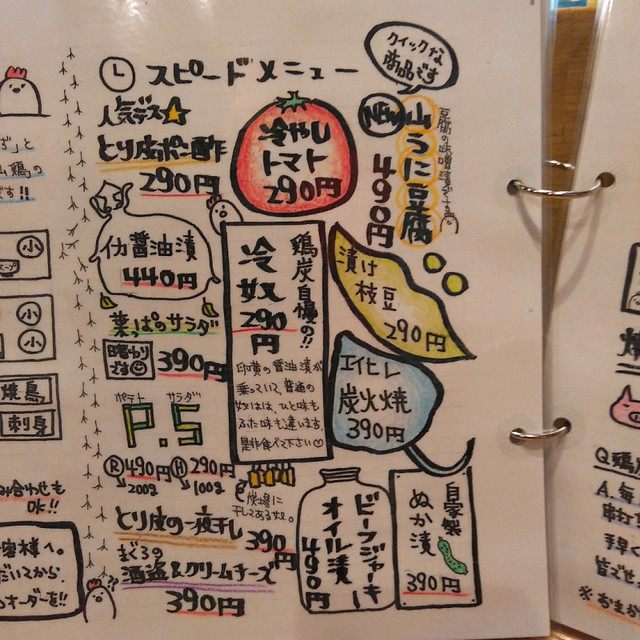 スピードメニュー
クイックな
商品です
人気デス
とり皮ポン酢作
290円
冷やし
トマト
290円
NEW
山うに豆腐
490円
イカ醤油漬
440円
鶏炭自慢の!!
冷奴
290円
漬け
枝豆
290円
葉っぱのサラダ
日替わり
です
390円
エイヒレ
炭火焼
390円
ポテト サラダ
P.S
R 490円 H 290円
200g 100g
とり皮の一夜干し
390円
炭場に
干してある奴。
まぐろの
酒盗&クリームチーズ
390円
ビーフジャーキー
オイル漬
490円
自家製
ぬか漬
390円
乗っていて、普通の
是非食べて下さい
小
小
小
焼鳥
刺身
み合わせも
OK!!
様へ。
だいてから
オーダーを!!
です!!
Q鶏
A.毎